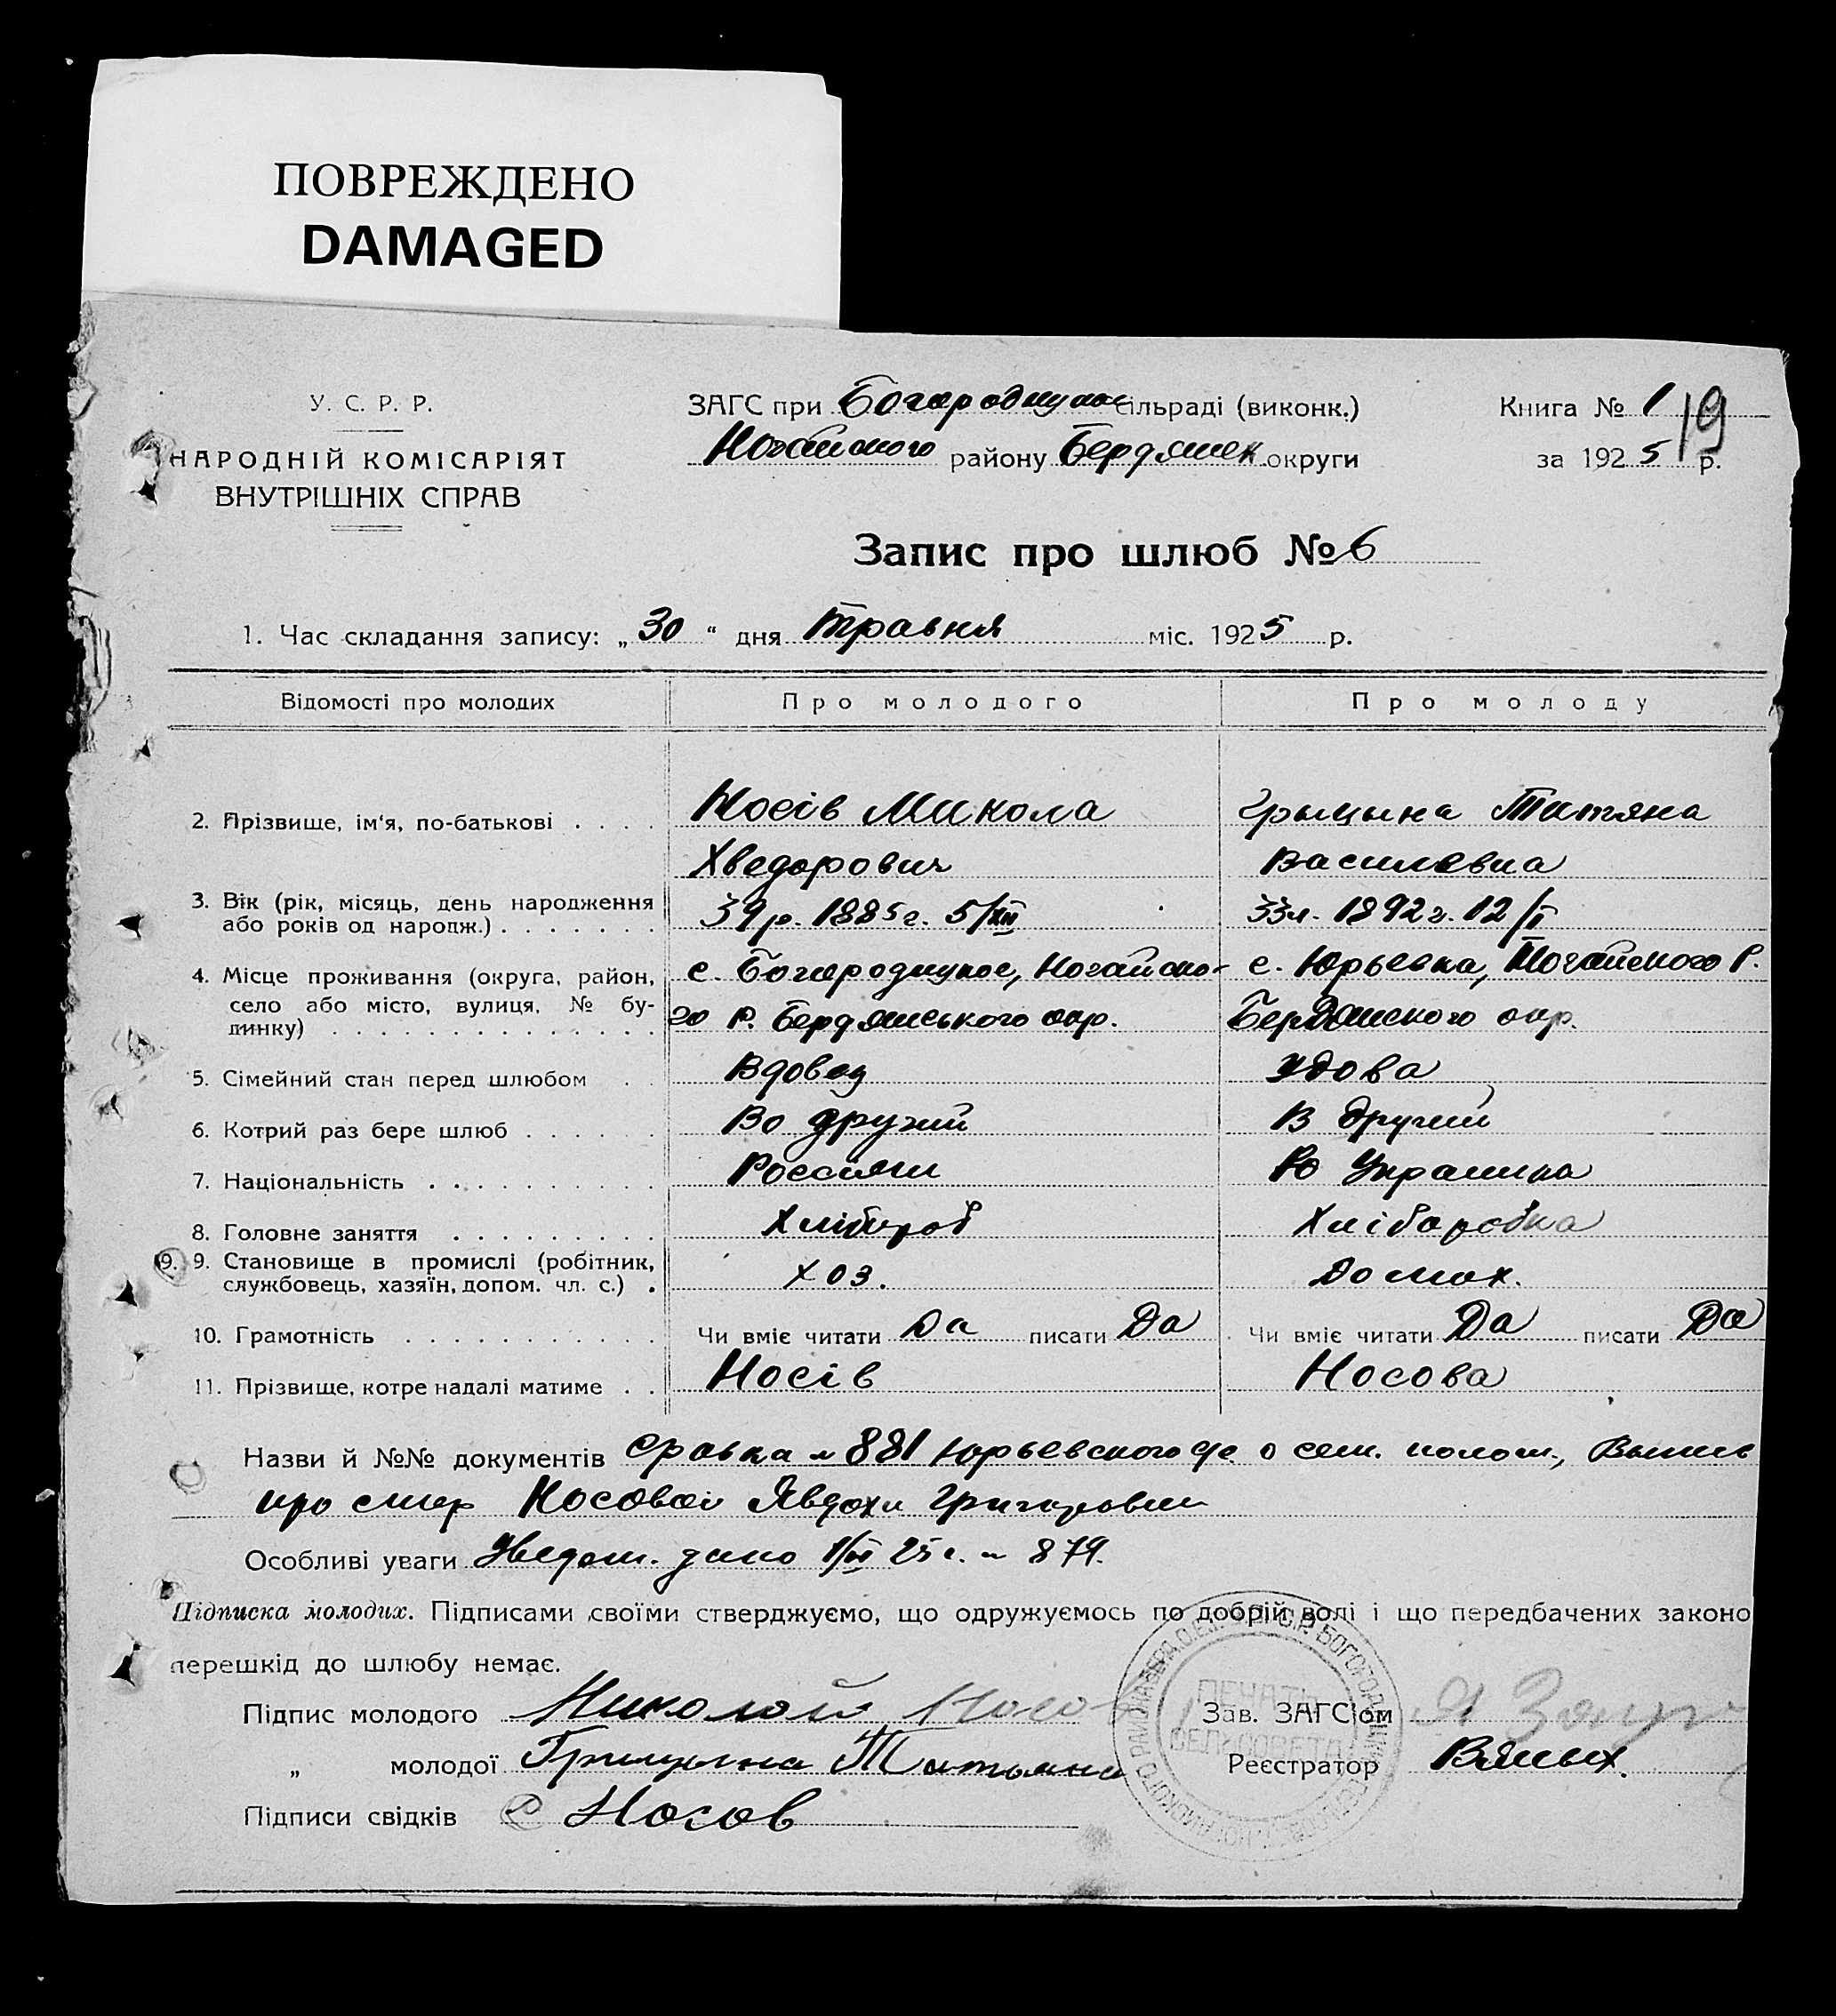 ПОВРЕЖДЕНО
DAMAGED
У. С. Р. Р.
НАРОДНІЙ КОМІСАРІЯТ
ВНУТРІШНІХ СПРАВ
ЗАГС при Богородицкое сільраді (виконк.)
Ногайского району Бердянск округи
Книга № 1
19
за 1925 р.
Запис про шлюб № 6
1. Час складання запису: „30“ дня Травня міс. 1925 р.
Відомості про молодих Про молодого Про молоду
2. Прізвище, ім'я, по-батькові . . . . Носів Микола Грыцына Татяна
Хведорович Василевна
3. Вік (рік, місяць, день народження 39 р. 1885 г. 5/XII 33 л. 1892 г. 12/I
або років од народж.) . . . . . . .
4. Місце проживання (округа, район, с. Богородицкое, Ногайско- с. Юрьевка, Ногайского Р.
село або місто, вулиця, № бу- го Р. Бердянського окр. Бердянского окр.
динку) . . . . . . . . . . . . . .
5. Сімейний стан перед шлюбом . . Вдовец Удова
6. Котрий раз бере шлюб . . . . . . Во другий В другий
7. Національність . . . . . . . . . . Россиян Украинка
8. Головне заняття . . . . . . . . . Хлібороб Хліборобка
9. 9. Становище в промислі (робітник, хоз. Домох.
службовець, хазяїн, допом. чл. с.) .
10. Грамотність . . . . . . . . . . . Чи вміє читати Да писати Да Чи вміє читати Да писати Да
11. Прізвище, котре надалі матиме . . Носів Носова
Назви й №№ документів Справка № 881 Юрьевского о сем. полож., Выпись
про смер Носовой Явдохи Григоровни
Особливі уваги Уведом. дано 25 г. № 879.
Підписка молодих. Підписами своїми стверджуємо, що одружуємось по добрій волі і що передбачених законо
перешкід до шлюбу немає.
Підпис молодого Николай Носов
Зав. ЗАГС'ом
„ молодої Грицына Татьяна
Реєстратор
Підписи свідків Носов
ПЕЧАТЬ
СЕЛЬСОВЕТА